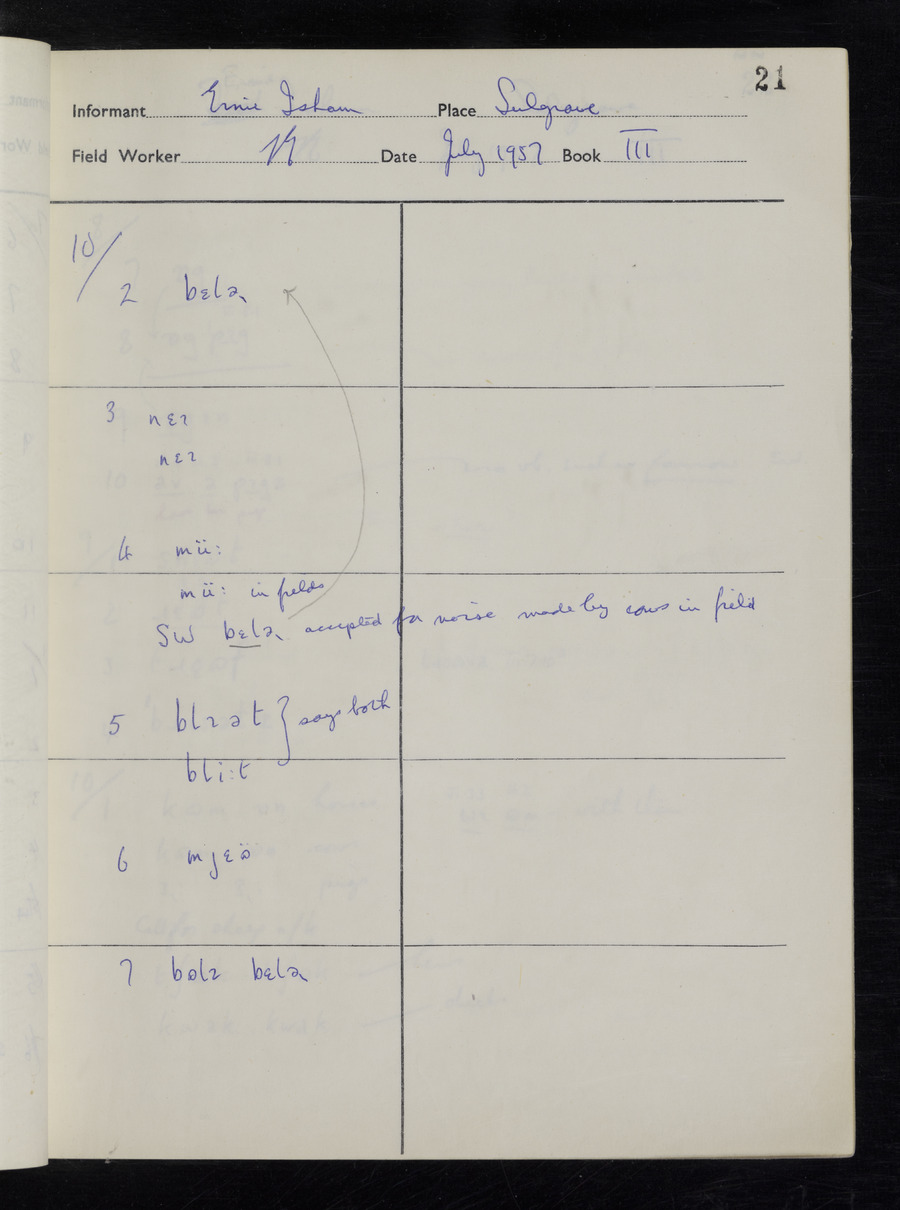 21
Informant Ernie Isham Place Sulgrave
Field Worker Date July 1957 Book III
10/
2 bɛlə˞
3 nɛɪ
nɛɪ
4 mïi:
mïi: in fields
SW bɛlə˞ accepted for noise made by cows in field
5 blɪət } says both
bli:t
6 mjɛö
7 bəlz bɛlə˞